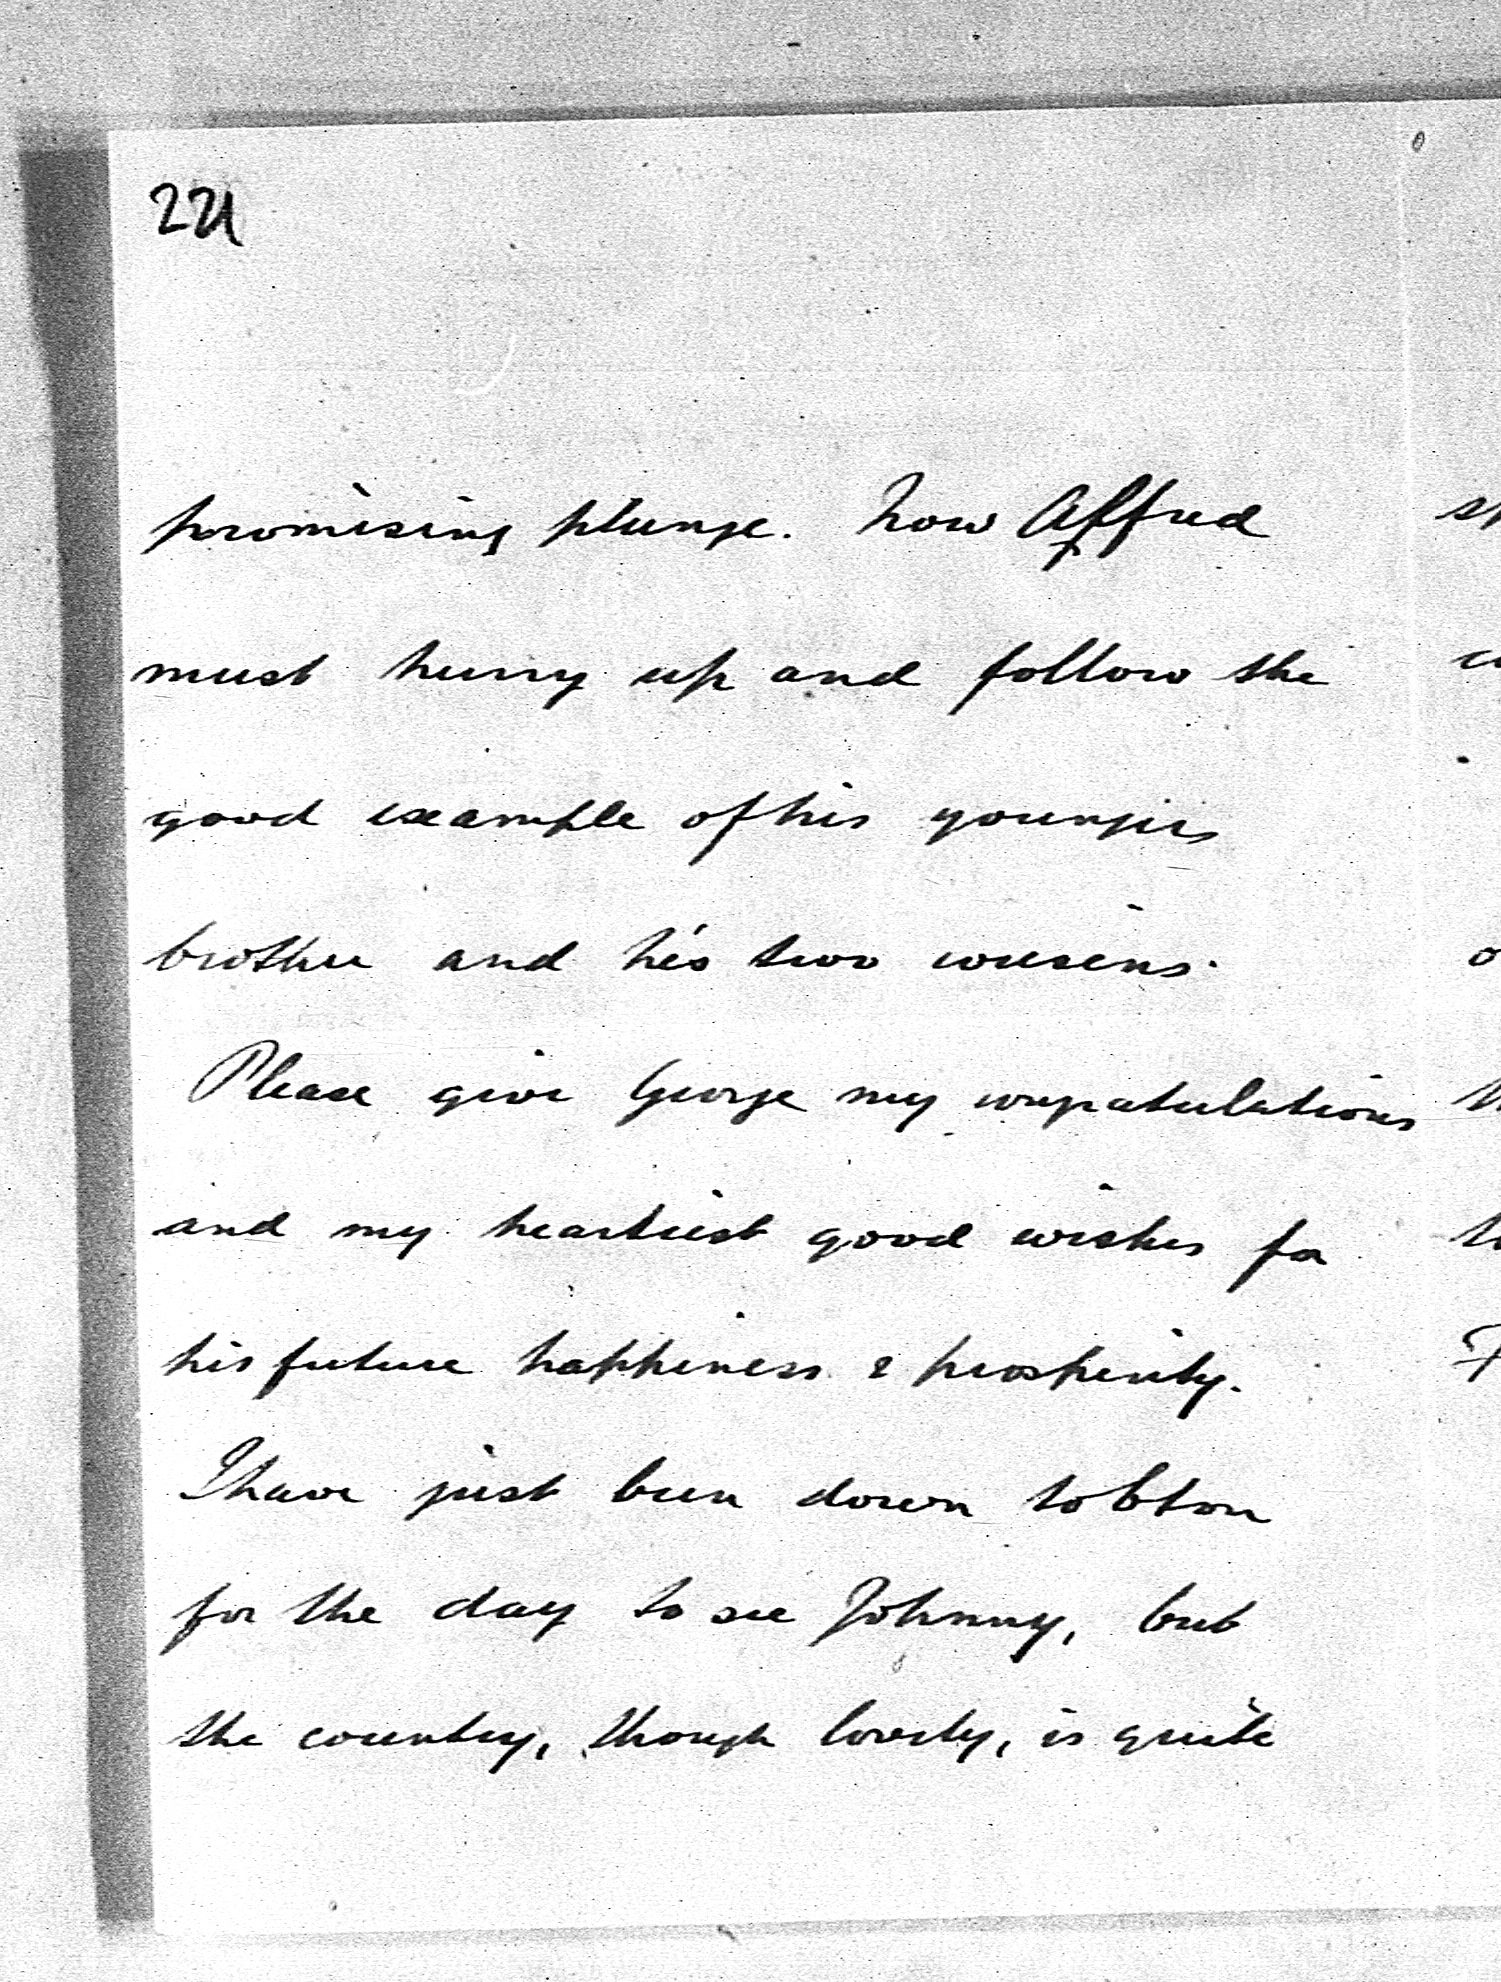 promising plunge. Now Alfred
must hurry up and follow the
good example of his younger
brother and his two cousins.
Please give George my congratulations
and my heartiest good wishes for
his future happiness & prosperity.
I have just been down to Eton
for the day to see Johnny, but
the country, though lovely, is quite